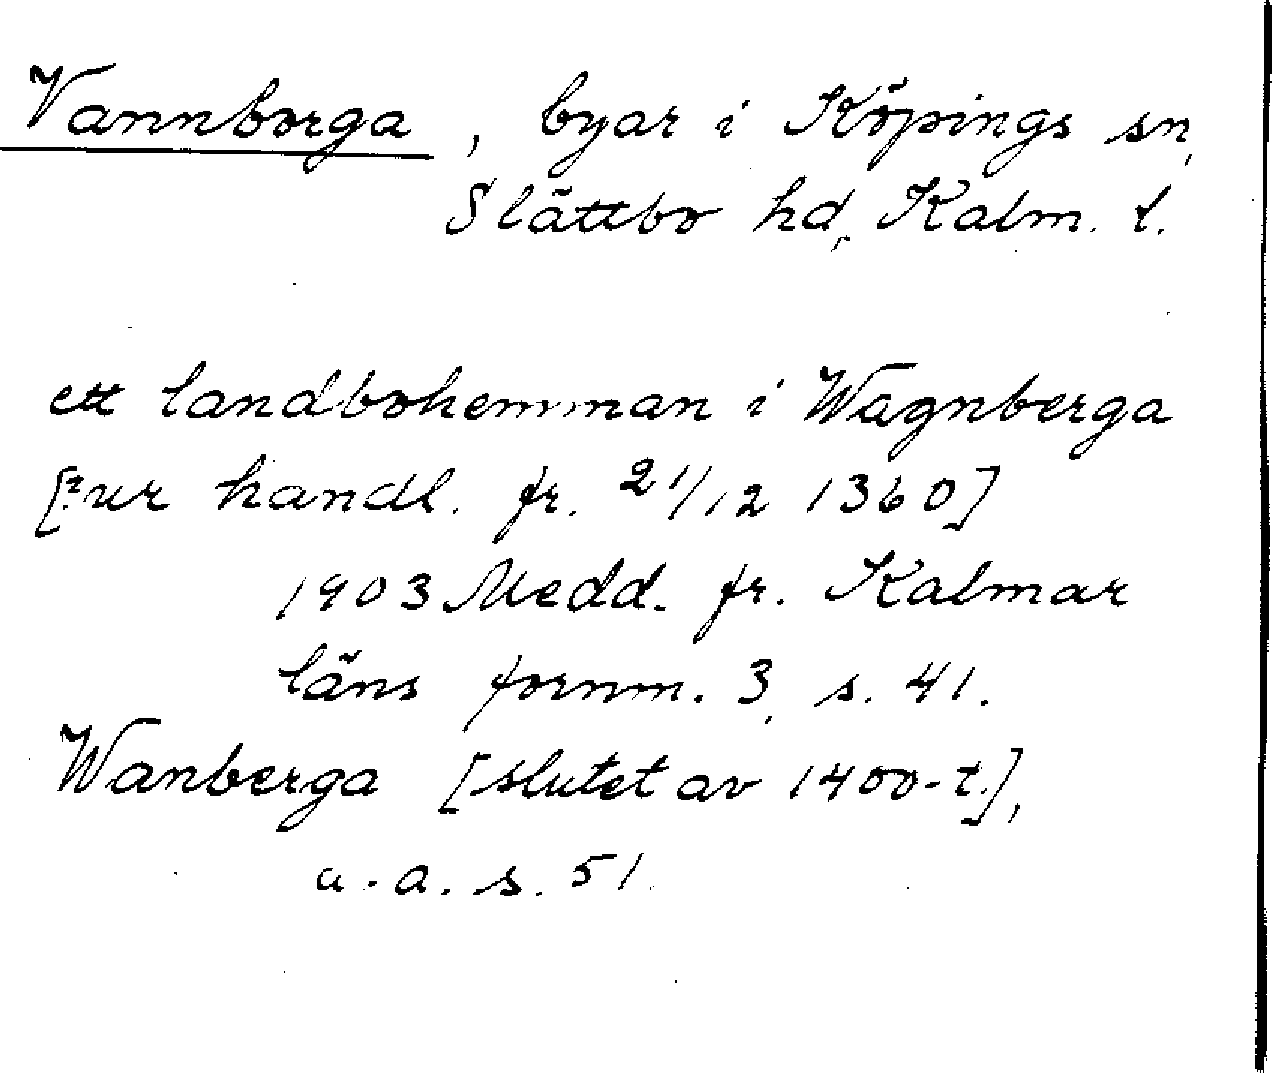 Vannborga, byar i Köpings sn,
Slättbo hd, Kalm. l.
ett landbohemman i Wagnberga
[: ur handl. fr. 21/12 1360]
1903 Medd. fr. Kalmar
läns fornm. 3, s. 41.
Wanberga [slutet av 1400-t.],
a.a. s. 51.